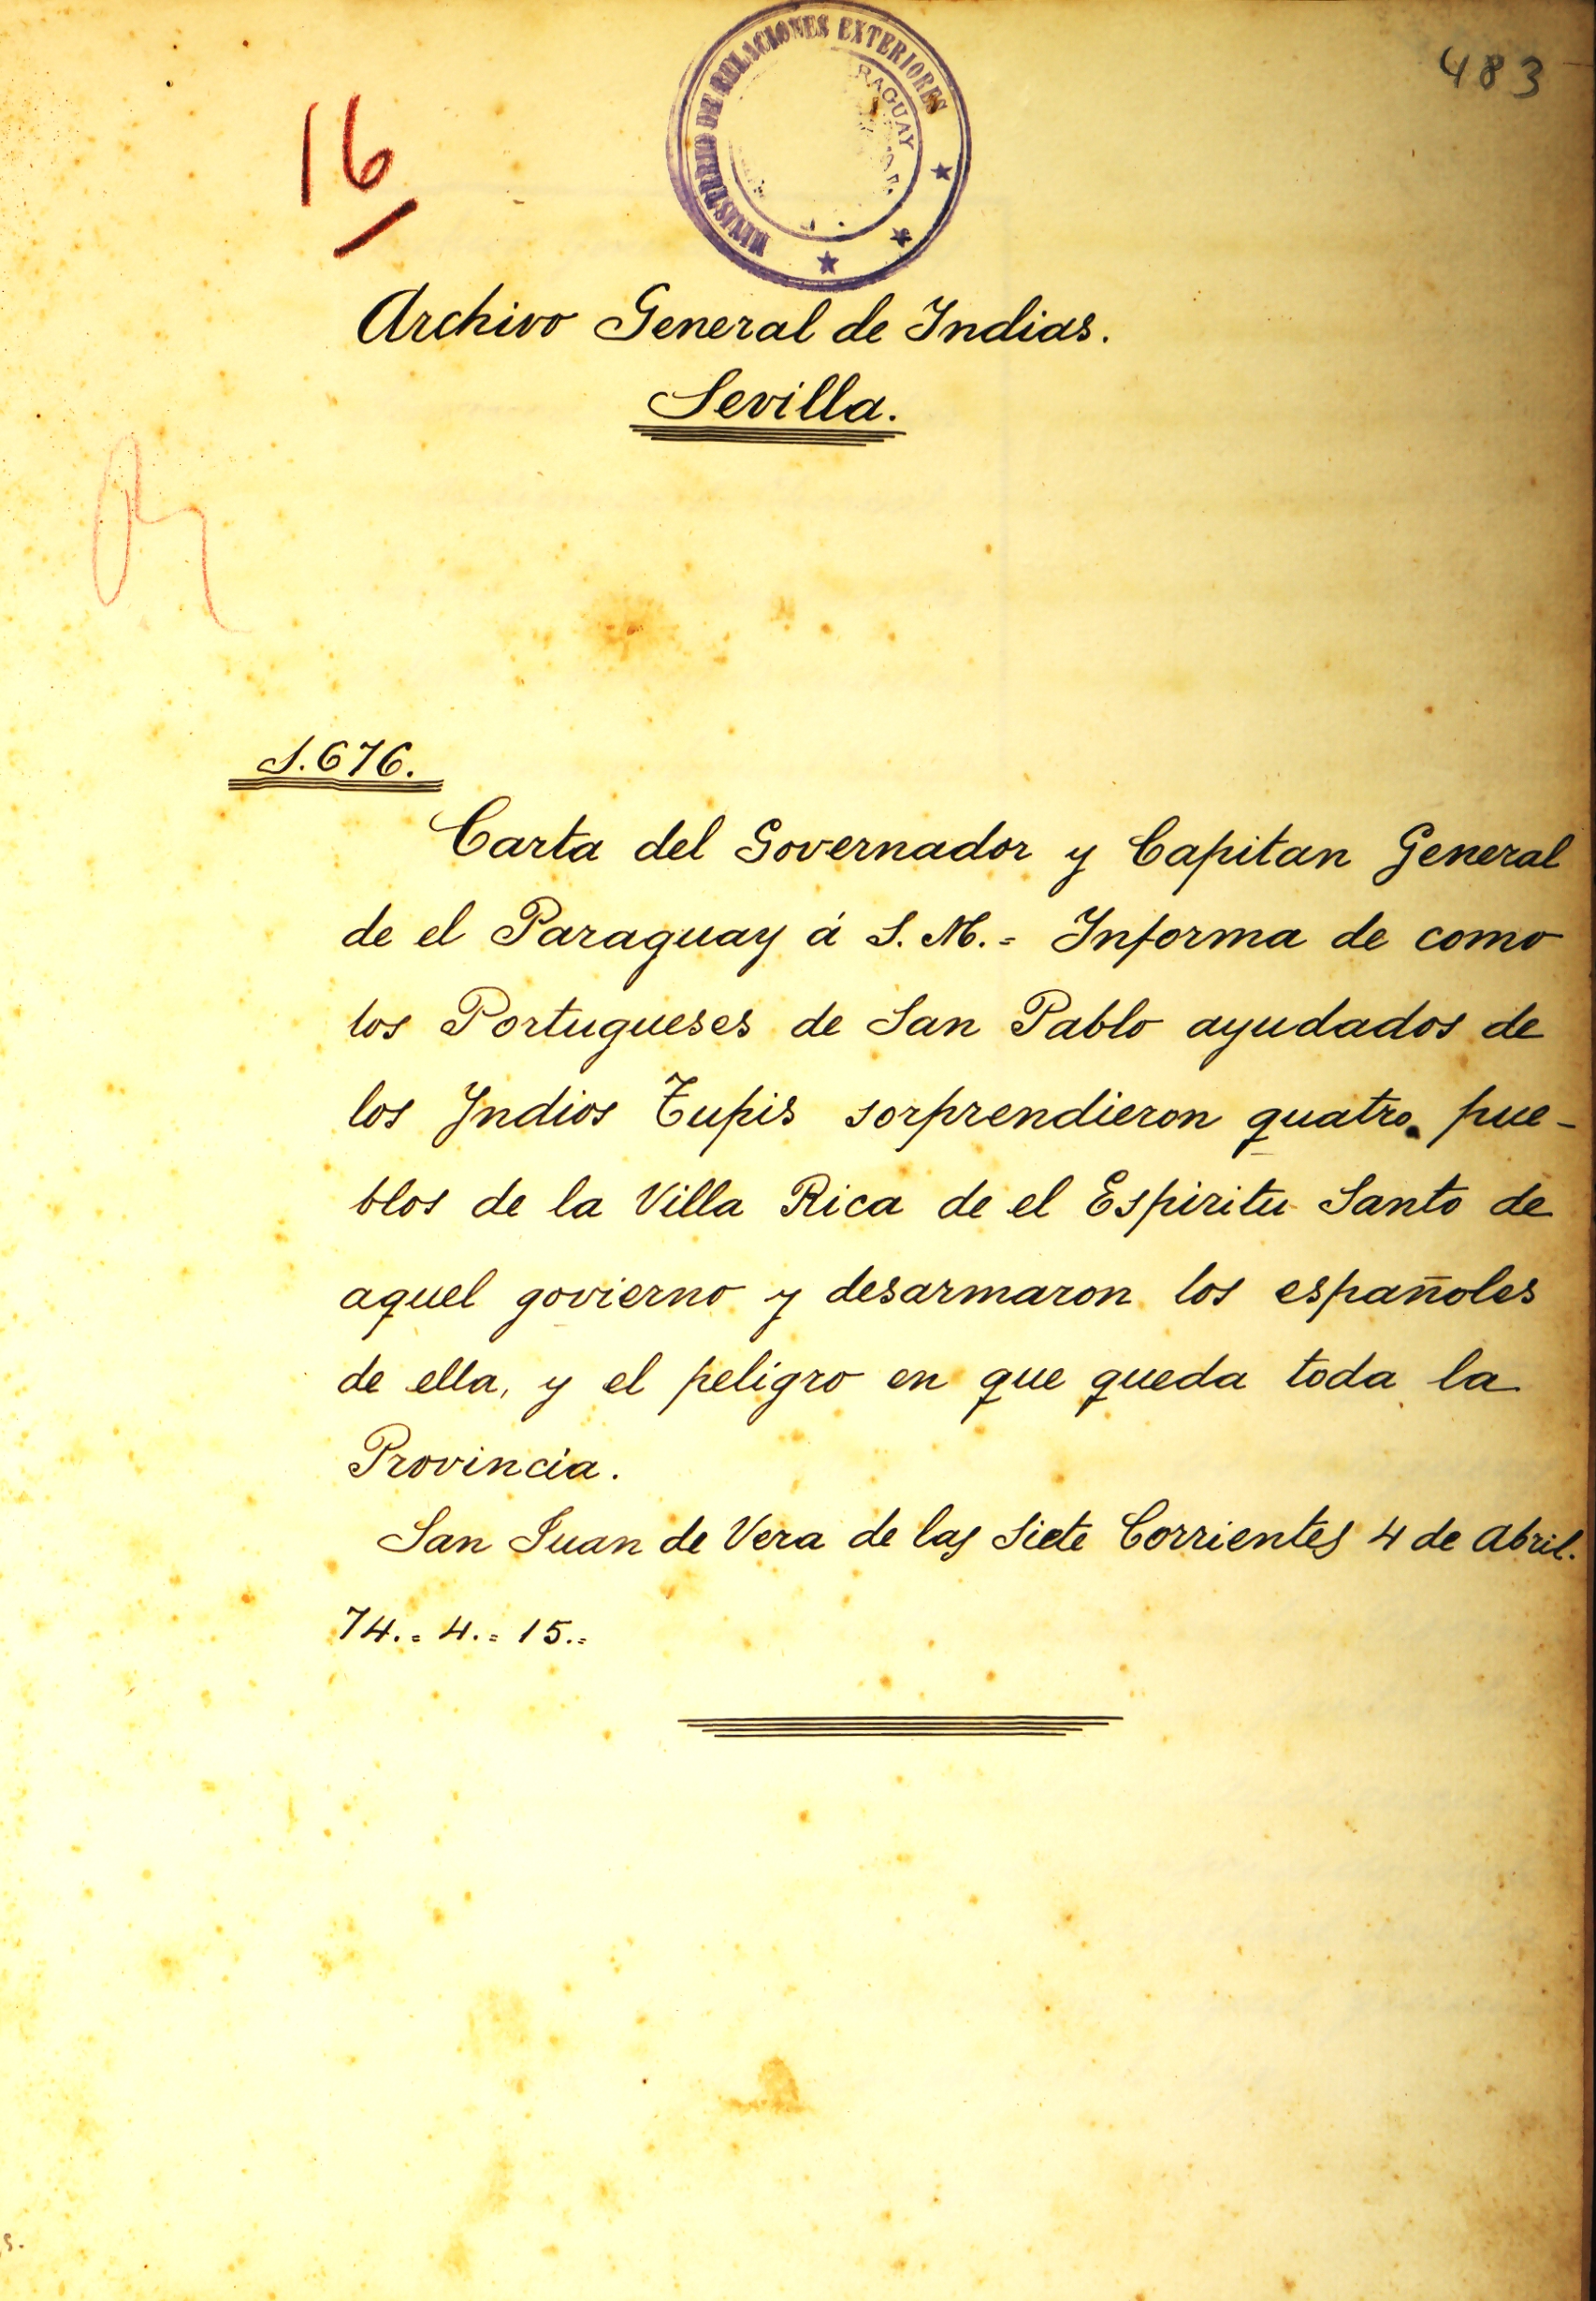 483
16
MINISTERIO DE RELACIONES EXTERIORES
RAGUAY
Archivo General de Indias.
Sevilla.
1.676.
Carta del Governador y Capitan General
de el Paraguay á S. M.= Informa de como
los Portugueses de San Pablo ayudados de
los Yndios Tupis sorprendieron quatro pue-
blos de la Villa Rica de el Espiritu Santo de
aquel govierno y desarmaron los españoles
de ella, y el peligro en que queda toda la
Provincia.
San Juan de Vera de las Siete Corrientes 4 de Abril.
74.= 4.= 15.=
s.